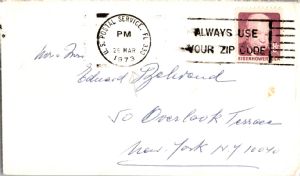 U.S. POSTAL SERVICE, FL 330
PM
26 MAR
1973
ALWAYS USE
YOUR ZIP CODE
EISENHOWER
Mr & Mrs
Edward
50 Overlook Terrace
New York NY 10040